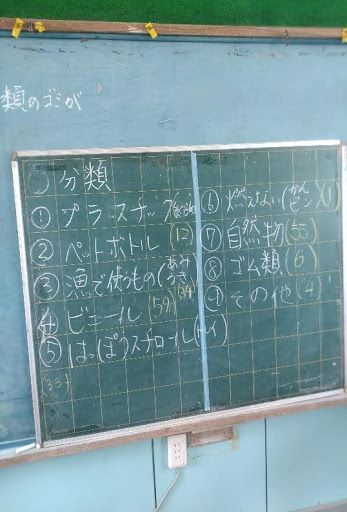 類のゴミが
分類
① プラスチック
② ペットボトル (12)
③ 漁で使うもの(あみ うき) (34)
④ ビニール (59)
⑤ はっぽうスチロール(トレイ)
(33)
⑥ 燃えない(かん ビン)(1)
⑦ 自然物 (55)
⑧ ゴム類 (6)
⑨ その他 (4)